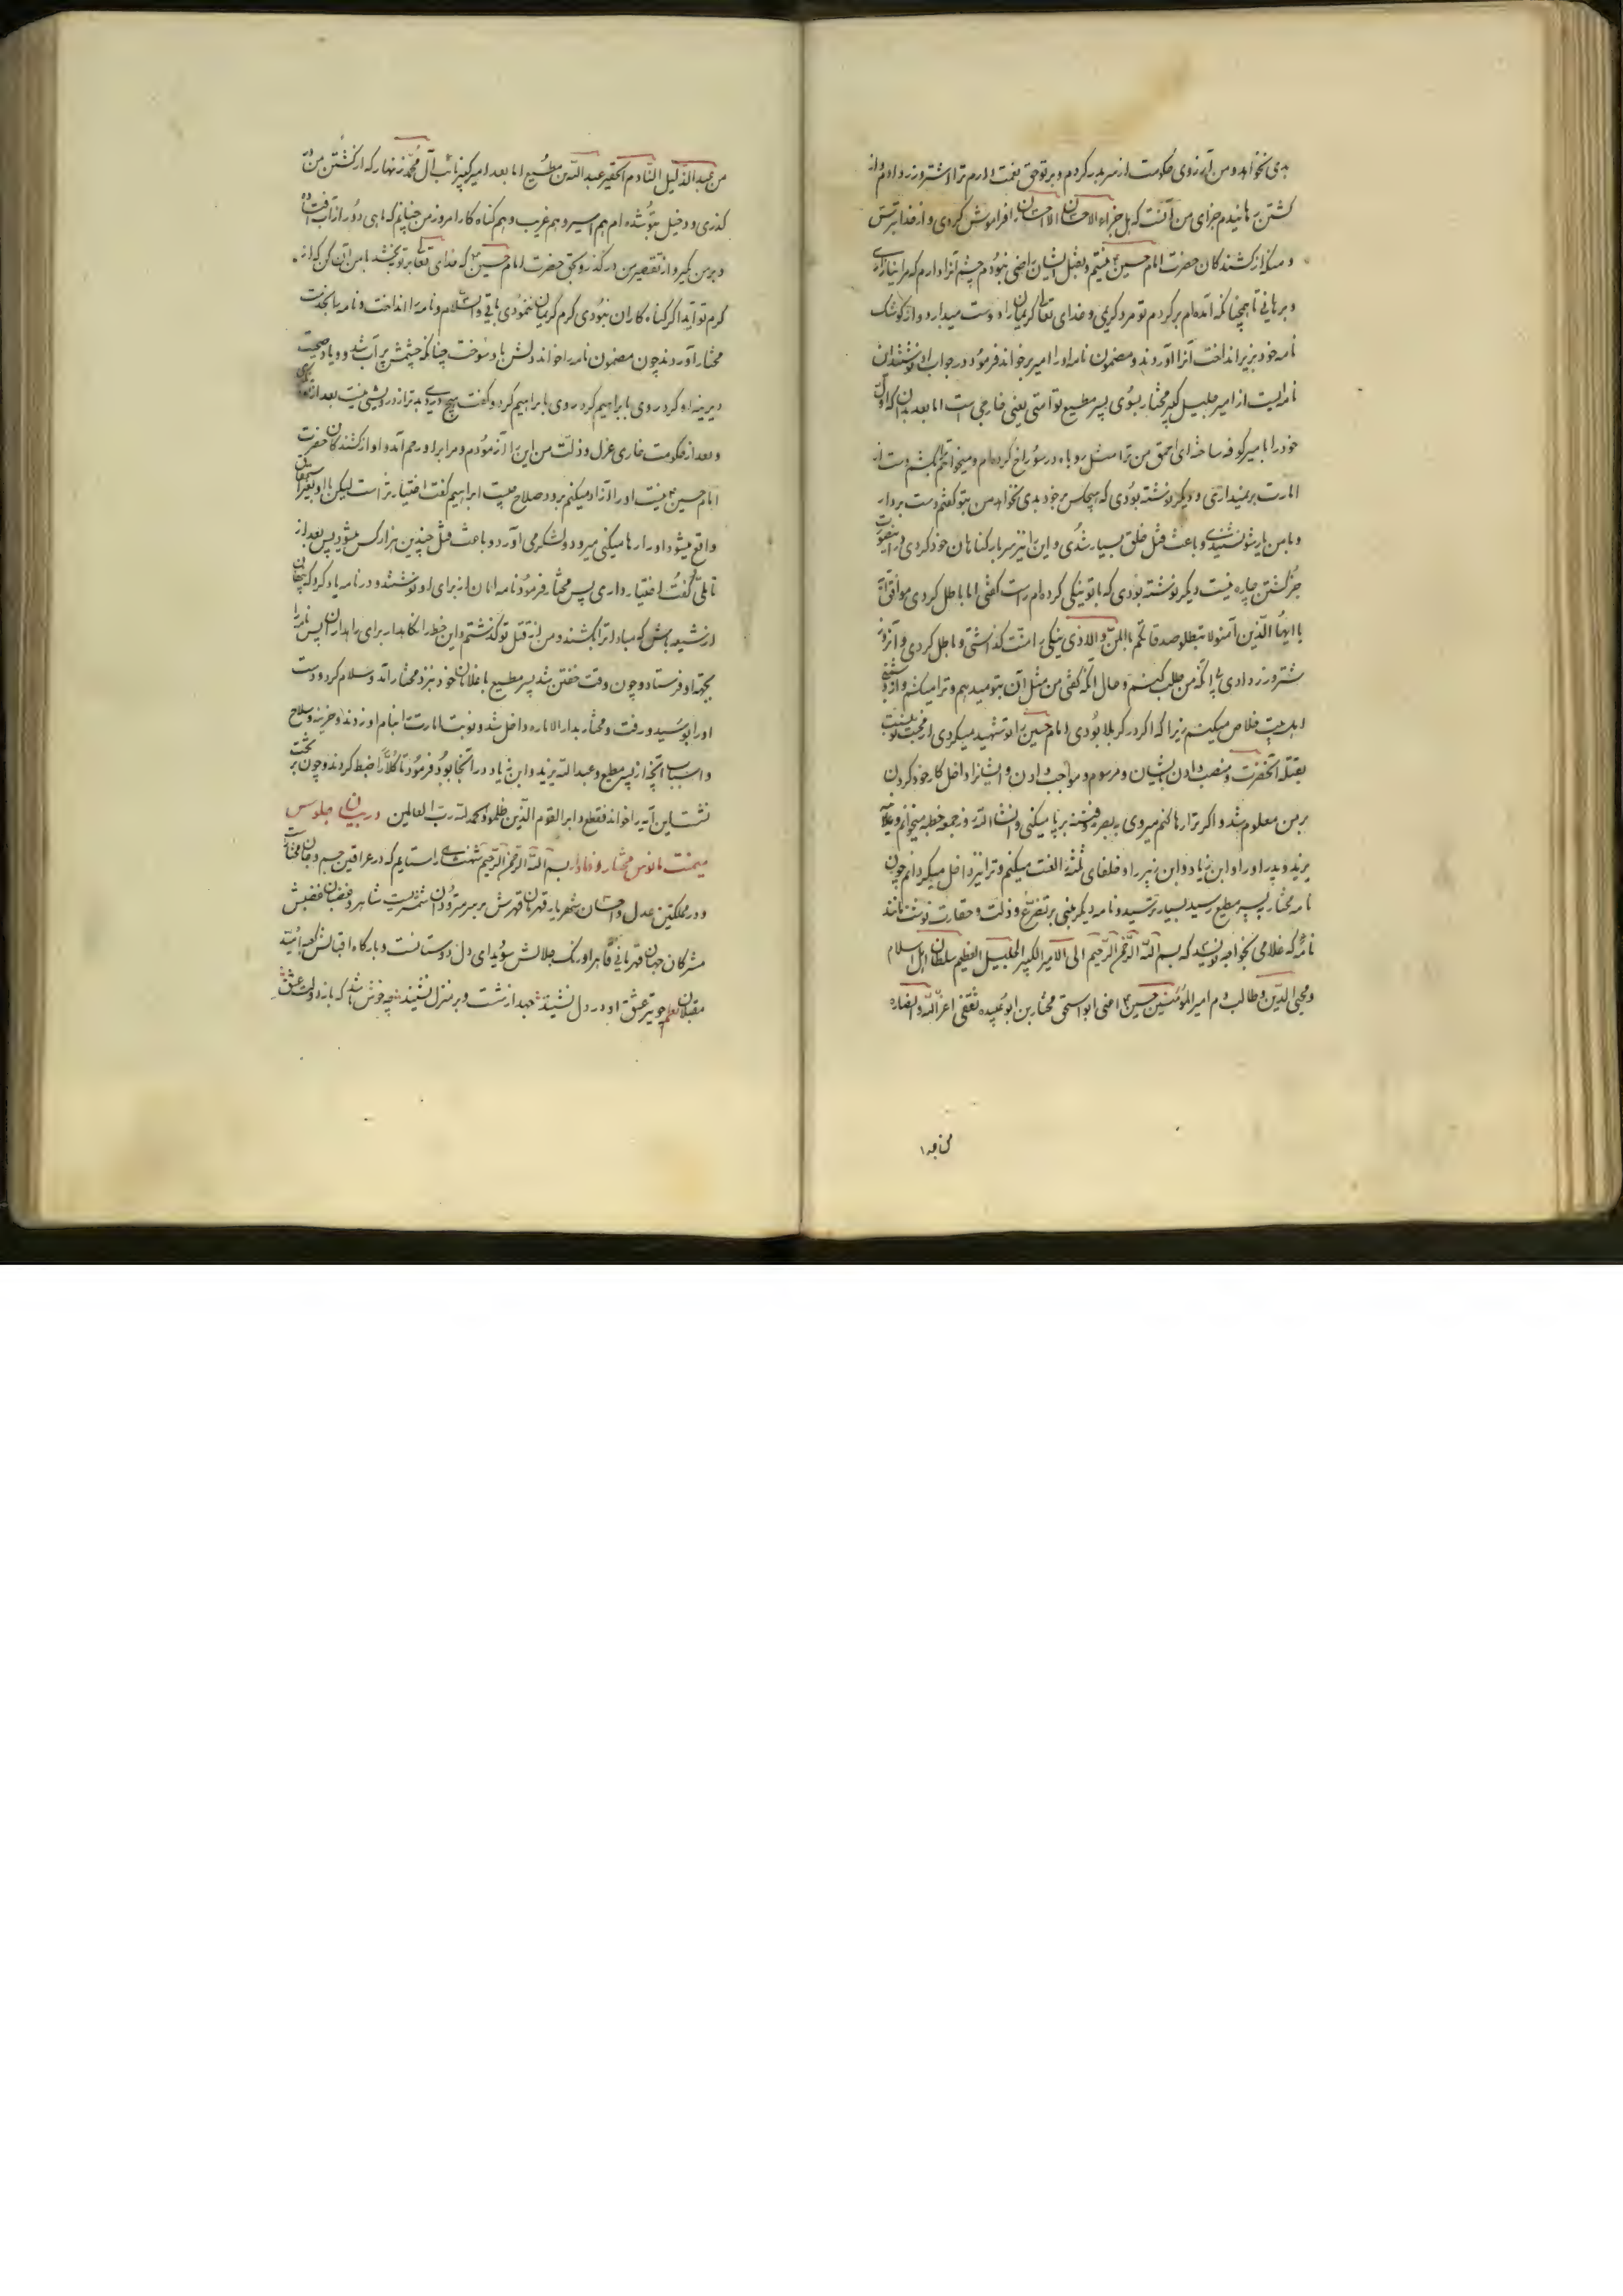 بدی نخواهد و من آرزوی حکومت از سر بدر کردم و بر تو حق نعمت دارم ترا شتر و زر دادم و از
کشتن رهانیدم جزای من آنست که هل جزاء الاحسان الا الاحسان را فراموش کردی و از خدا بترس
و من از کشندکان حضرت امام حسین نیستم و بقتل ایشان راضی نبودم چشم آنرا دارم که مرا
و برهانی تا همچنانکه آمده‌ام برکردم تو مرد کریمی و خدای تعالی کریمان را دوست میدارد و از کوشک
نامه خود بزیر انداخت آنرا آوردند و مضمون نامه او را امیر برخواند فرمود در جواب او نوشتند این
نامه‌ایست از امیر جلیل کبیر مختار بسوی پسر مطیع تو امتی یعنی خارجی است اما بعد بدان که اول
خود را امیر کوفه ساخته‌ای احمق من ترا مثل روباه در سوراخ کرده‌ام و میخواهم بکشم دست از
امارت بر نمیداری و دیکر نوشته بودی که هیچکس بر خود بدی نخواهد من بتو کفتم دست بردار
و با من یار شو نشنیدی و باعث قتل خلق بسیار شدی و این را نیز سر بار کناهان خود کردی
جز کشتن چاره نیست دیکر نوشته بودی که با تو نیکی کرده‌ام راست کفتی اما باطل کردی موافق آیه
یا ایها الذین آمنو لا تبطلو صدقاتکم بالمن والاذی نیکی را منت کذاشتی و باطل کردی و آنروز
شتر و زر دادی بی آنکه من طلب کنم و حال آنکه کفتی من مثل آن بتو میدهم و ترا میکشم و از
اهل بیت خلاص میکنم زیرا که اکر در کربلا بودی امام حسین را تو شهید میکردی از محبت تو
بقتله آنحضرت و منصب دادن ایشان و مرسوم و مواجب دادن و ایشانرا داخل کار خود کردن
بر من معلوم شد و اکر ترا رها کنم میروی به بصره و فتنه بر پا میکنی و انشاء الله روز جمعه خطبه میخوانم و علانیه
یزید و پدر او را و ابن زیاد و ابن زبیر را و خلفای ثلثه را لعنت میکنم و ترا نیز داخل میکردانم چون
نامه مختار به پسر مطیع رسید بسیار بترسید و نامه دیکر مبنی بر تضرع و ذلت و حقارت نوشت مانند
نامه که غلامی بخواجه نویسد که بسم الله الرحمن الرحیم الی الامیر الکبیر الجلیل العظیم سلطان اهل اسلام
و محیی الدین و طالب دم امیر المؤمنین حسین اعنی ابو اسحق مختار بن ابو عبیده ثقفی اعز الله انصاره
من عبد الذلیل النادم الحقیر عبد الله بن مطیع اما بعد امیر کبیر نائب آل محمد زنهار که از کشتن من در
کذری و دخیل بتو شده‌ام هم اسیر و هم غریب و هم کناه کار امروز من چنانم که ماهی دور از آب افتاده
و بر من مکیر و از تقصیر من در کذر و بحق حضرت امام حسین که خدای تعالی بر تو بخشد با من آن کن که از
کرم تو آید اکر کناه کاران نبودی کرم کریمان ننمودی باقی والسلام و نامه را انداخت و نامه را بخدمت
مختار آوردند چون مضمون نامه را خواند دلش باو سوخت چنانکه چشمش پر آب شد و یاد صحبت
دیرینه او کرد روی بابراهیم کرد و کفت هیچ دردی بدتر از درویشی نیست بعد از
و بعد از حکومت خاری عزل و ذلت من این را آزمودم و مرا بر او رحم آمد و او از کشندکان حضرت
امام حسین نیست او را آزاد میکنم برود صلاح چیست ابراهیم کفت اختیار تراست لیکن
واقع میشود او را رها میکنی میرود و لشکر می آورد و باعث قتل چندین هزار کس میشود پس بعد از
تاملی کفت اختیار داری پس مختار فرمود نامه امان از برای او نوشتند و در نامه یاد کرد که پنهان
از شیعه باش که مبادا ترا بکشند و من از قتل تو کذشتم و این خط را نکاهدار برای راهداران پس نامه را
بجهة او فرستاد و چون وقت خفتن شد پسر مطیع با غلامان خود نزد مختار آمد و سلام کرد و دست
او را بوسید و رفت و مختار بدار الاماره داخل شد و نوبت امارت بنام او زدند و خزینه و سلاح
و اسباب آنچه از پسر مطیع و عبد الله یزید و ابن زیاد در آنجا بود فرمود تا کلاً را ضبط کردند و چون بر تخت
نشست این آیه را خواند فقطع دابر القوم الذین ظلموا والحمد لله رب العالمین در بیان جلوس
میمنت مانوس مختار وفادار بسم الله الرحمن الرحیم شهنشاهی را ستایم که در عراقین جسم و جان
و در مملکتین عدل و احسان شهریار قهرمان قهرش بر سر متمردان شمشیریست شاهر و غضبان غضبش
مشرکان جهان قهرمانی قاهر اورنک جلالش سویدای دل دوستانست و بارکاه اقبالش کعبه امید
مقبلان نظم چو تیر عشق او در دل نشیند جهد از شست و بر منزل نشیند چه خوش باشد که باز دولت عشق
من عبد